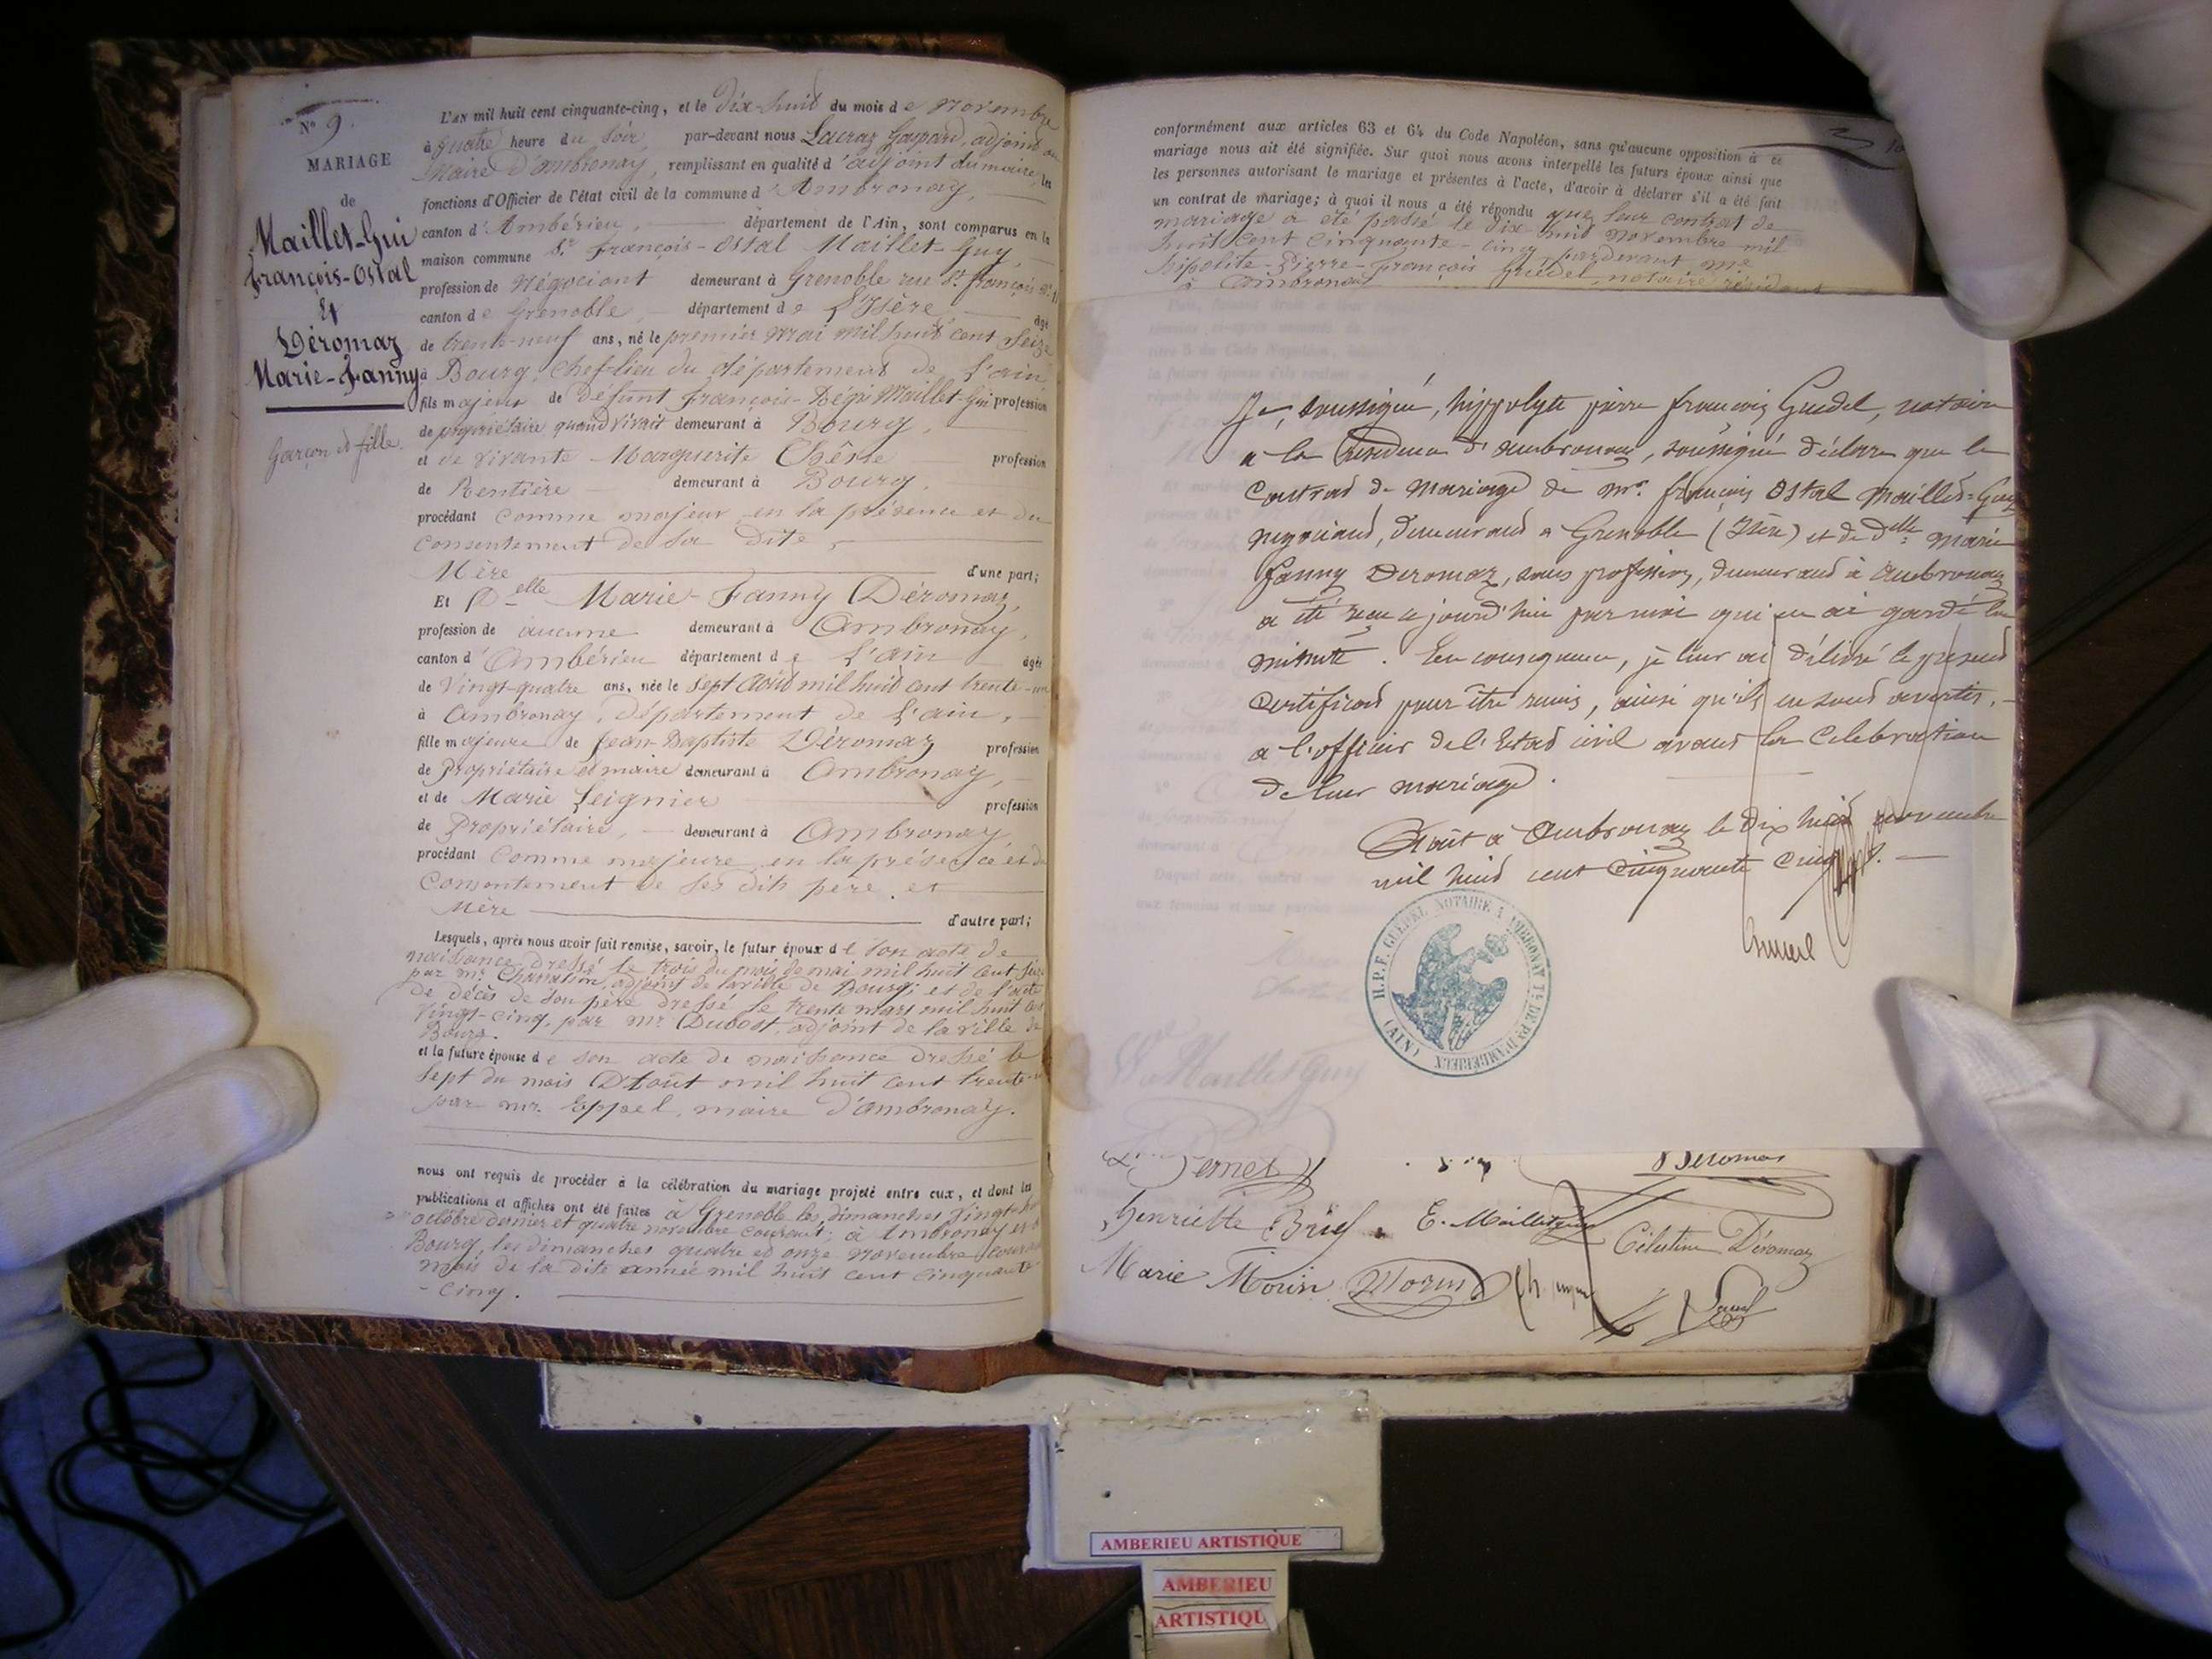 N° 9.
MARIAGE
de
Maillet-Gui
François-Ostal
Et
Déromaz
Marie-Fanny
Garçon et fille.
L'AN mil huit cent cinquante-cinq, et le dix-huit du mois de novembre
à quatre heure du soir, par-devant nous Lacraz Gaspard, adjoint au
Maire d'ambronay, remplissant en qualité d'adjoint du maire, les
fonctions d'Officier de l'état civil de la commune d'Ambronay,
canton d'Ambérieu, département de l'Ain, sont comparus en la
maison commune Sr. François-Ostal Maillet-Guy,
profession de Négociant demeurant à Grenoble rue St. françois
canton de Grenoble, département de l'Isère, âgé
de trente-neuf ans, né le premier mai mil huit cent seize
à Bourg, Chef-lieu du département de l'ain,
fils majeur de défunt François-Régis Maillet-Gui profession
de propriétaire quand vivait demeurant à Bourg,
et de vivante Marguerite Chêne profession
de Rentière demeurant à Bourg.
procédant comme majeur, en la présence et du
consentement de sa dite,
Mère d'une part;
Et Delle Marie-Fanny Déromaz,
profession de aucune demeurant à Ambronay,
canton d'Ambérieu département de l'ain âgée
de Vingt-quatre ans, née le sept août mil huit cent trente-un
à Ambronay, département de l'ain,
fille majeure de Jean-Baptiste Déromaz profession
de Propriétaire et maire demeurant à Ambronay,
et de Marie Seignier profession
de Propriétaire, demeurant à Ambronay,
procédant comme majeure, en la présence et du
consentement de ses dits père et
Mère d'autre part;
Lesquels, après nous avoir fait remise, savoir, le futur époux de son acte de
naissance dressé le trois du mois de mai mil huit cent seize
par mr. adjoint de la ville de Bourg; et de l'acte
de décès de son père dressé le trente mars mil huit cent
Vingt-cinq, par mr. Dubost, adjoint de la ville de
Bourg.
et la future épouse de son acte de naissance dressé le
sept du mois D'août mil huit cent trente-un
par mr. Eppel, maire d'ambronay.
nous ont requis de procéder à la célébration du mariage projeté entre eux, et dont les
publications et affiches ont été faites à Grenoble les dimanches vingt-huit
octobre dernier et quatre novembre courant; à Ambronay et à
Bourg, les dimanches quatre et onze novembre courant
mois de la dite année mil huit cent cinquante
-cinq.
conformément aux articles 63 et 64 du Code Napoléon, sans qu'aucune opposition à ce
mariage nous ait été signifiée. Sur quoi nous avons interpellé les futurs époux ainsi que
les personnes autorisant le mariage et présentes à l'acte, d'avoir à déclarer s'il a été fait
un contrat de mariage; à quoi il nous a été répondu que leur contrat de
mariage a été passé le dix-huit novembre mil
huit cent cinquante-cinq, pardevant me
hipolite-Pierre-françois Guédel, notaire résidant
à Ambronay
Je, soussigné, hippolyte pierre françois Guedel, notaire
à la résidence d'ambronay, soussigné déclare que le
Contrat de Mariage de mr. françois Ostal Maillet-Guy
negociant, demeurant à Grenoble (Isère) et de Delle Marie
fanny Deromaz, sans profession, demeurant à Ambronay
a été reçu ce jourd'hui par moi qui en ai gardé la
minute. En conséquence, je leur ai délivré le présent
certificat pour être remis, ainsi qu'ils en sont avertis,
à l'officier de l'Etat civil avant la Celebration
de leur mariage.
Fait à Ambronay le dix huit novembre
mil huit cent cinquante cinq.
H. P. F. GUEDEL NOTAIRE A AMBRONAY Tre DE Px D'AMBERIEUX (AIN)
Maillet Guy
Pernet
Déromaz
Henriette Brief
E. Mailletguy
Célestine Déromaz
Marie Morin
Morin
AMBERIEU ARTISTIQUE
AMBERIEU
ARTISTIQU